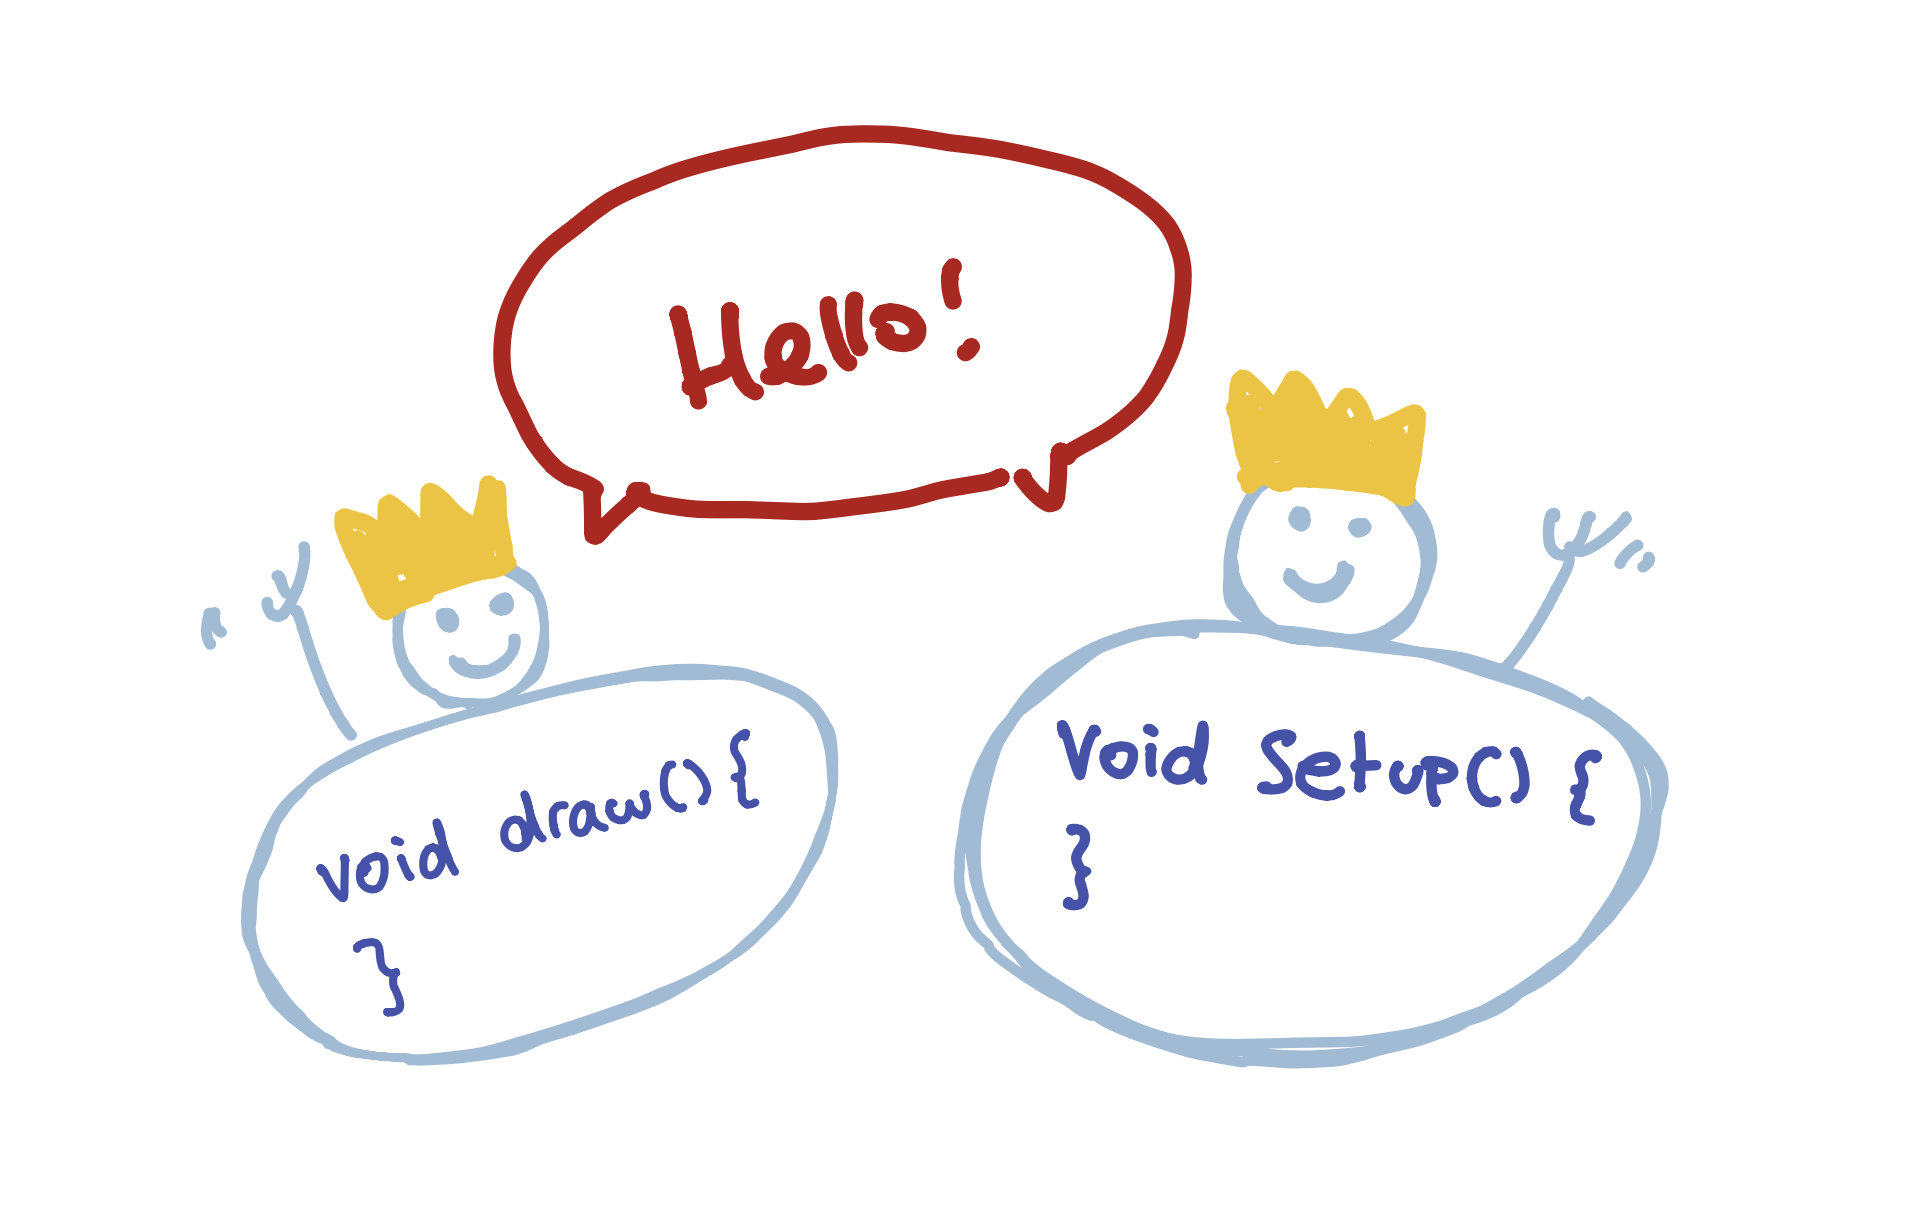 Hello!
void draw(){
}
Void Setup() {
}